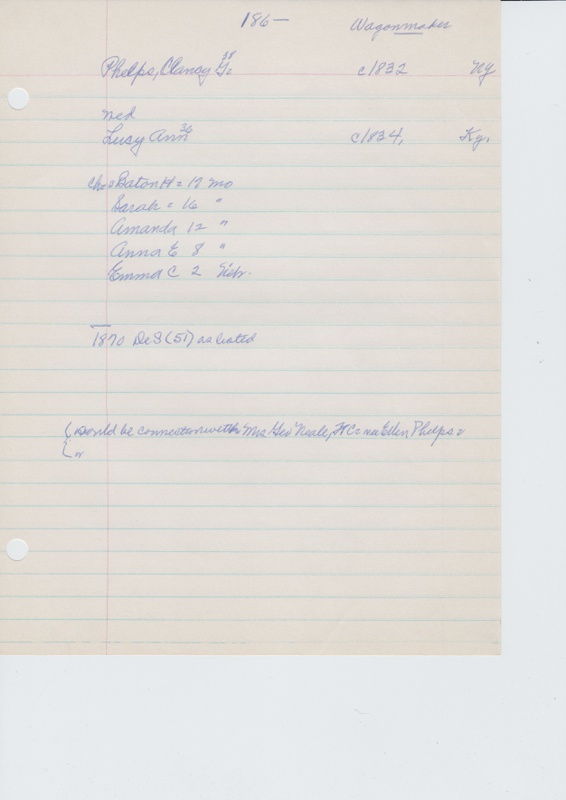 186— Wagonmaker
Phelps, Clancy G= 38 c/1832 NY
med
Lucy Ann 36 c1834, Ky.
ch= = H= 17 mo
Sarah = 16 "
Amanda 12 "
Anna E 8 "
Emma C 2 Nebr.
1870 DeS (51) as listed
(would be connection with Mrs Geo Neale, = nee Ellen Phelps =
( or